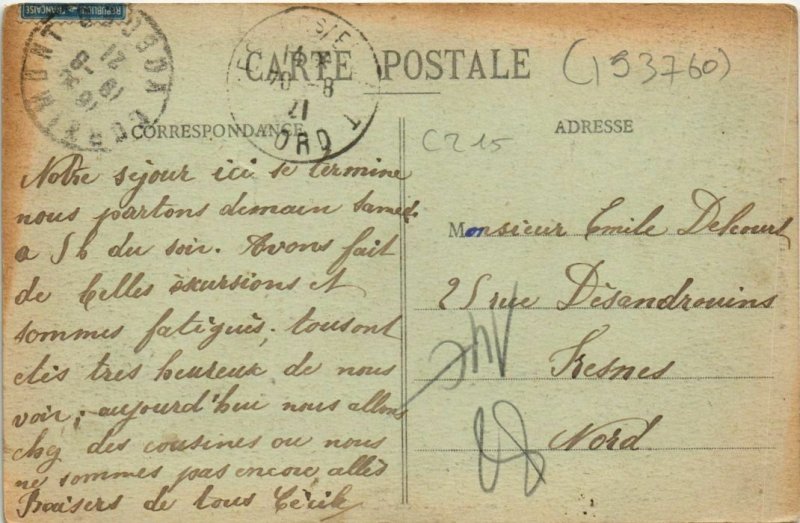 RÉPUBLIQUE FRANÇAISE
CARTE POSTALE
(153760)
C215
CORRESPONDANCE
ADRESSE
Notre séjour ici se termine
nous partons demain Samedi
a 5h du soir. Avons fait
de belles èxkursions et
sommes fatigués, tous ont
étés tres heureux de nous
voir; aujourd'hui nous allons
chg des cousines ou nous
ne sommes pas encore allès
Baisers de tous Cècile
Monsieur Emile Delcourt
25 rue Dèsandrouins
Fresnes
Nord
14
20-8
21
NORD